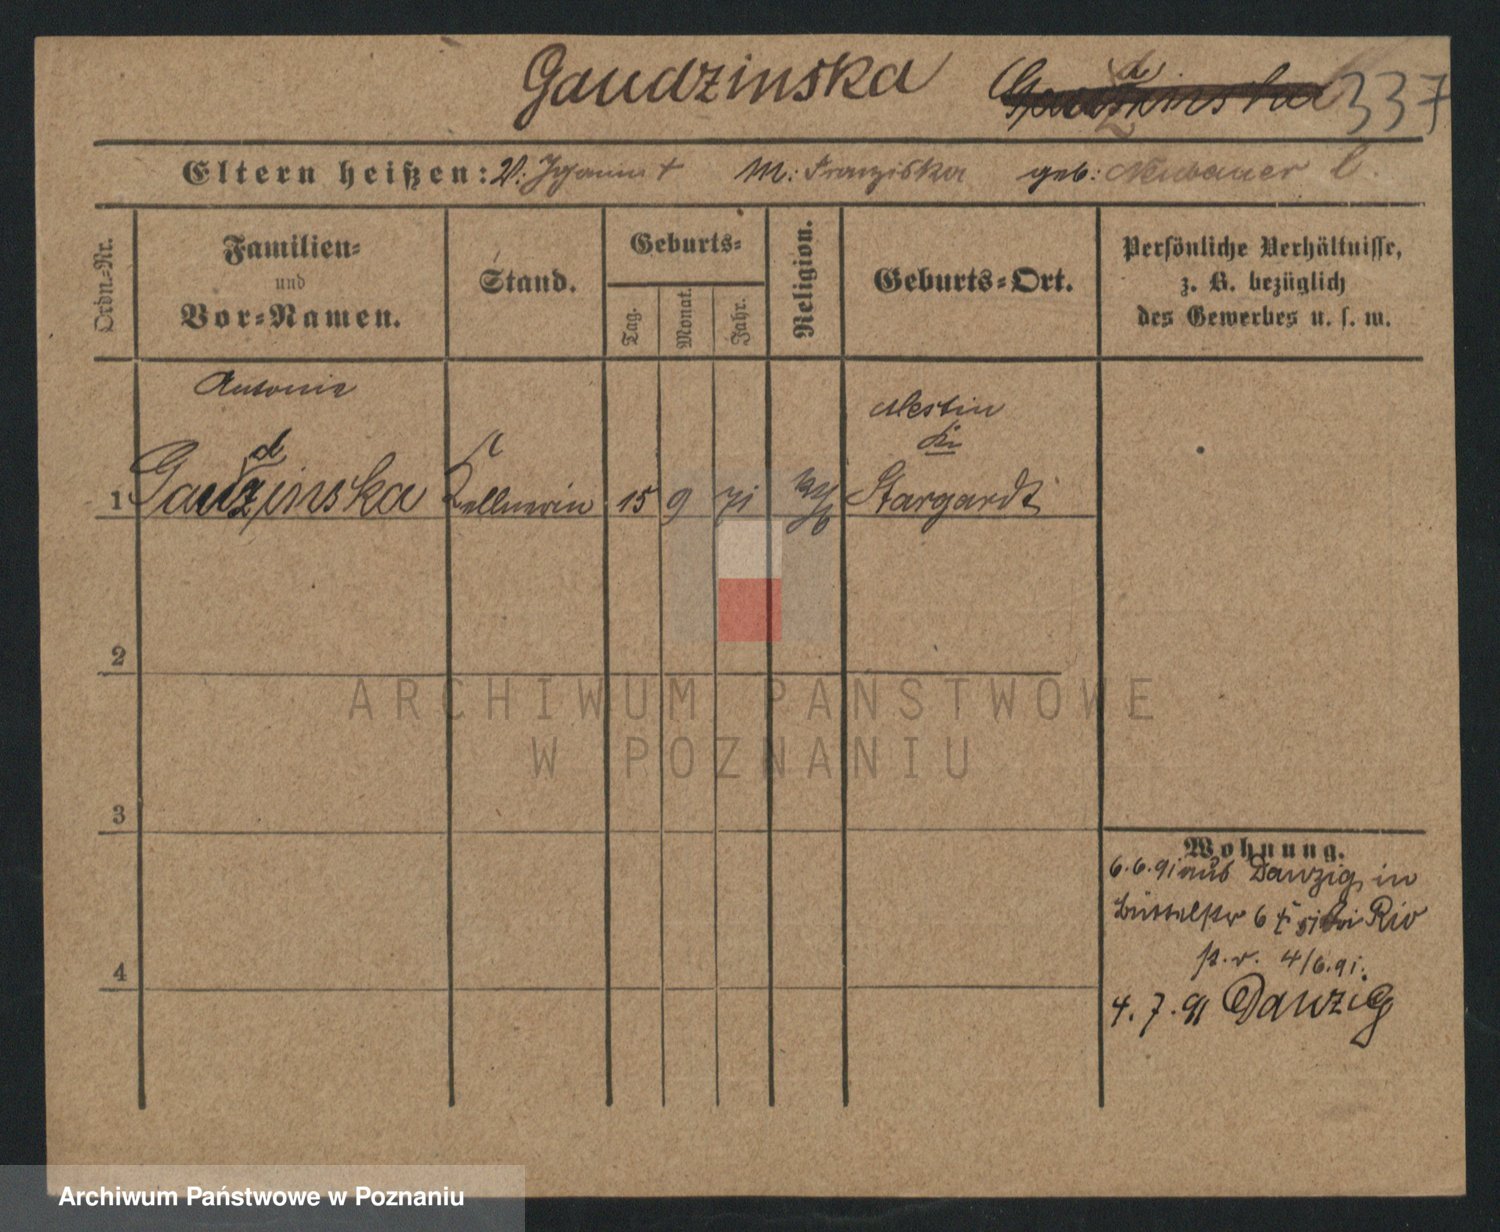 Gaudzinska 337
Eltern heißen: V: Johann † M: Franziska geb: Neubauer
Ordn.-Nr.
Familien-
und
Vor-Namen.
Stand.
Geburts-
Tag.
Monat.
Jahr.
Religion.
Geburts-Ort.
Persönliche Verhältnisse,
z. B. bezüglich
des Gewerbes u. s. w.
Antonie
1 Gaudzinska Kellnerin 15 9 71
Mestin
Kr
Stargardt
2
3
4
Wohnung.
6.6.91 aus Danzig in
Büttelstr 6 bei
4/6.91.
4.7.91 Danzig
ARCHIWUM PAŃSTWOWE
W POZNANIU
Archiwum Państwowe w Poznaniu